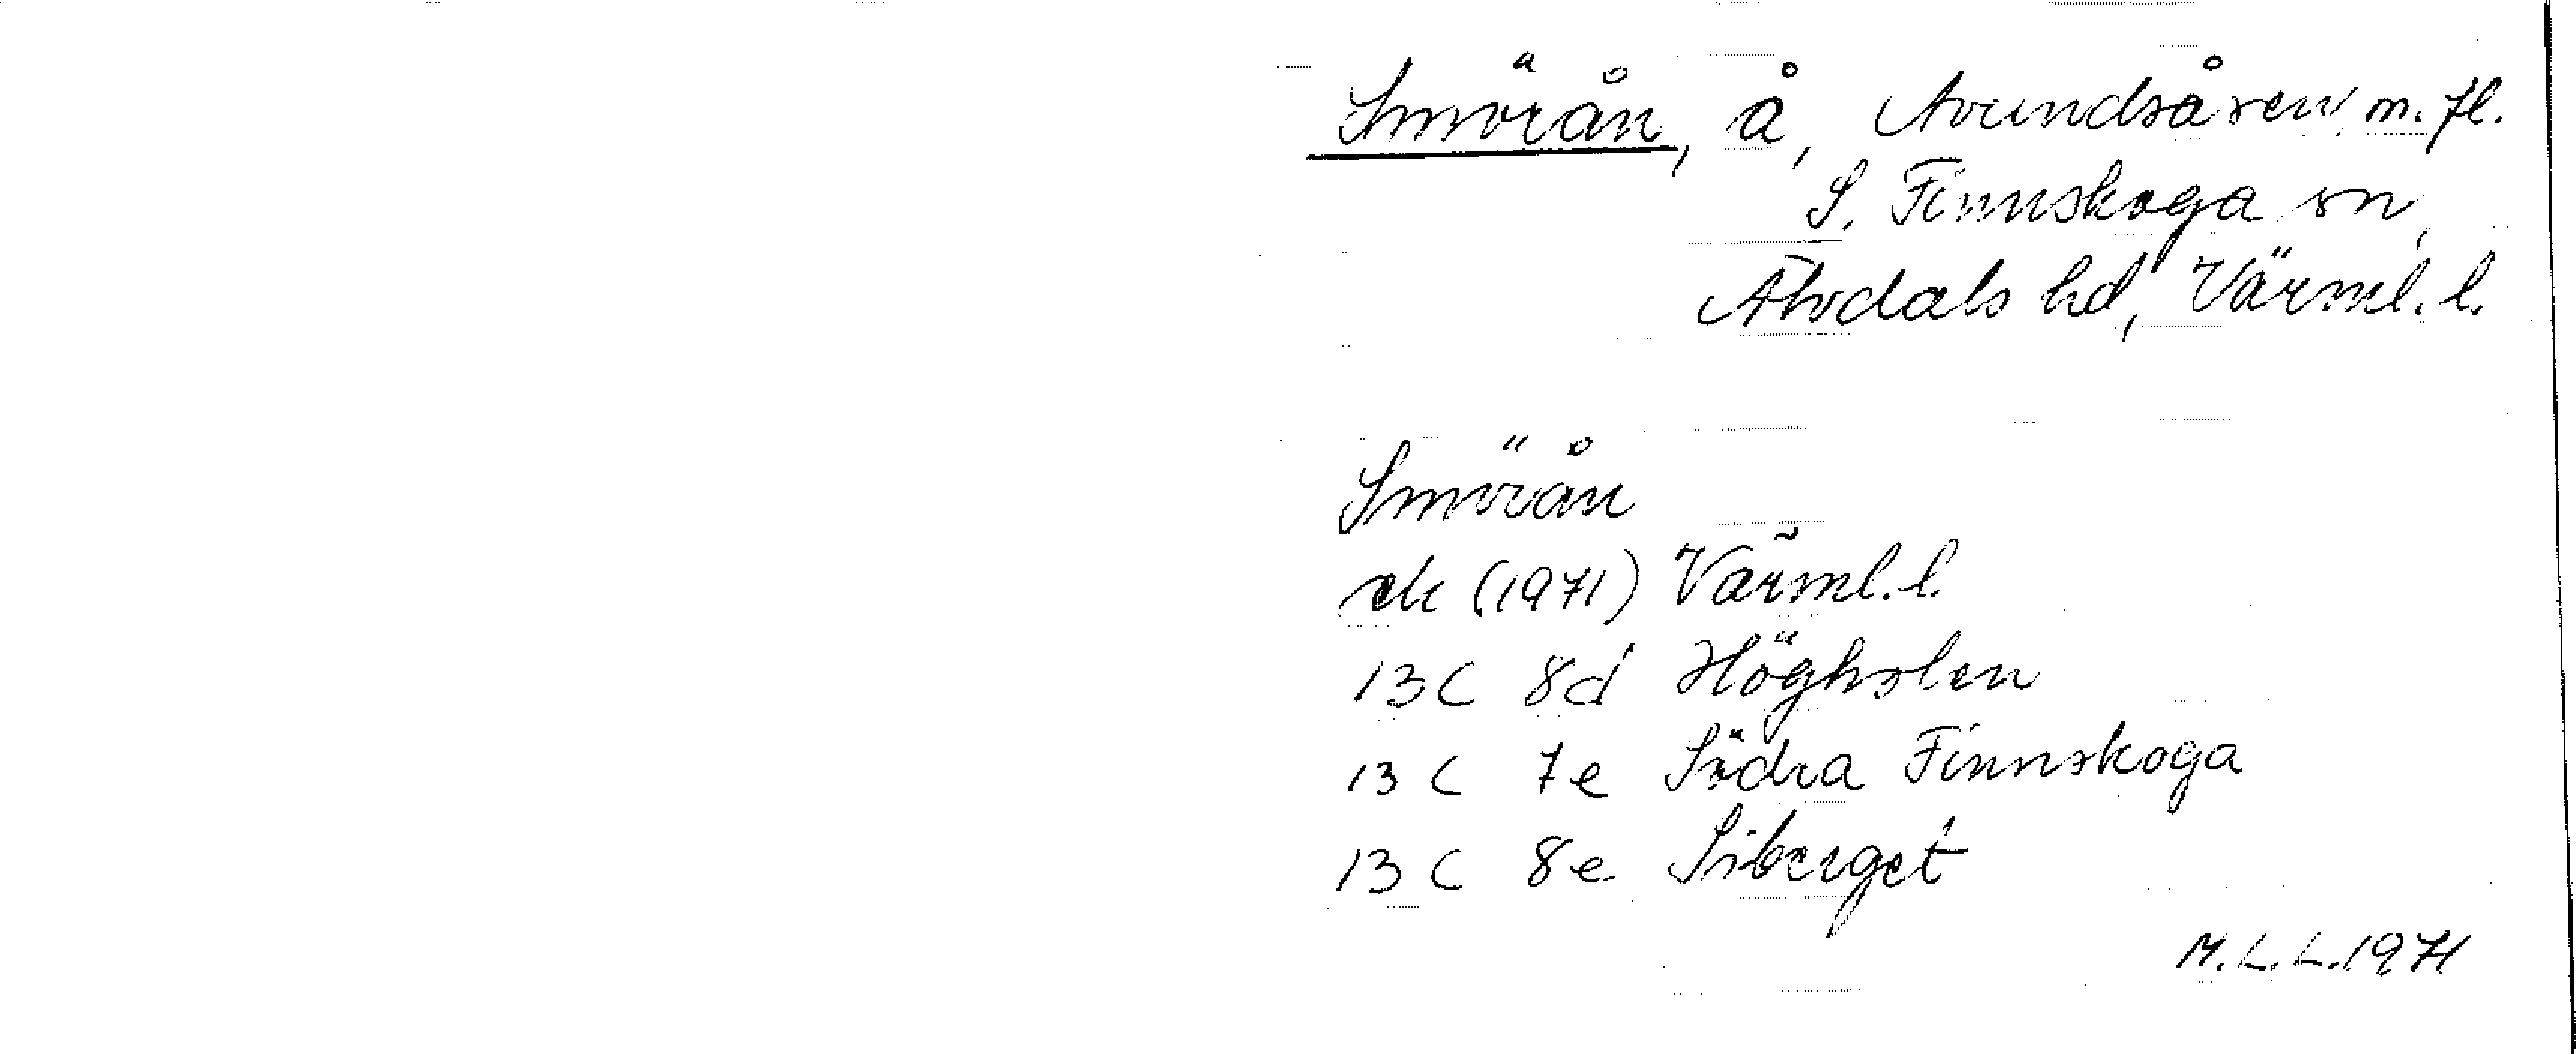 Smörån, å, Avundsåsen m.fl.
S. Finnskoga sn,
Älvdals hd, Värml. l.
Smörån
ek (1971) Värml. l.
13C 8d Högholen
13C 7e Södra Finnskoga
13C 8e Siberget
M.L.L. 1971